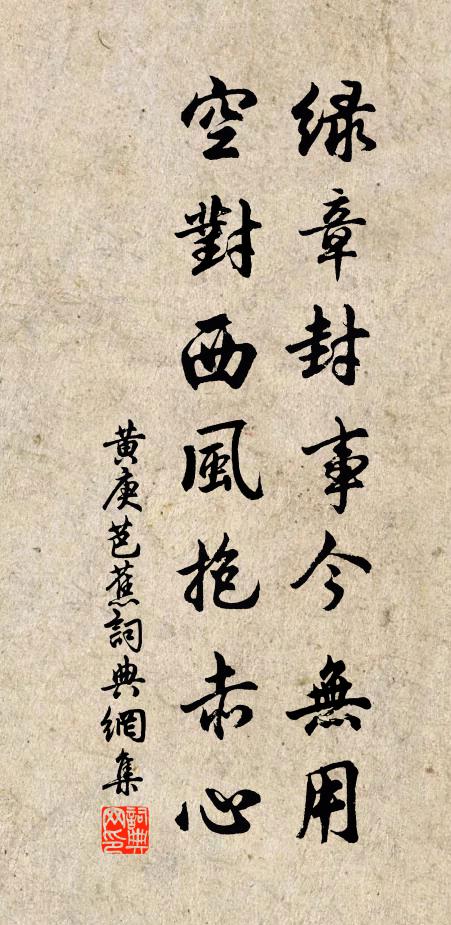 緑章封事今無用
空對西風抱赤心
黃庚芭蕉詞典網集
詞典網印